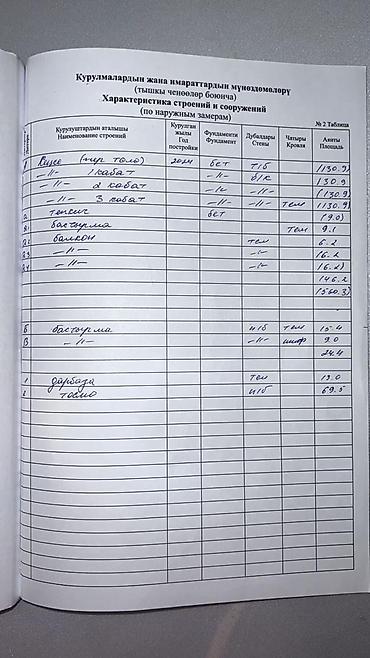 Курулмалардын жана имараттардын мүнөздөмөлөрү
(тышкы ченөөлөр боюнча)
Характеристика строений и сооружений
(по наружным замерам)
№ 2 Таблица
Курулуштардын аталышы Наименование строений Курулган жылы Год постройки Фундаменти Фундамент Дубалдары Стены Чатыры Кровля Аянты Площадь
2024 бет т/б (130.9)
-"- 1 кабат -"- б/к (130.9
-"- 2 кабат -"- -"- (130.9
-"- 3 кабат -"- -"- тем (130.9)
а тепкич бет (9.0)
а1 бастырма тем 9.1
а2 балкон тем 6.2
а3 -"- -"- (6.2
а4 -"- -"- (6.2)
146.2
(560.3)
Б бастырма и/б тем 15.4
В -"- -"- шиф 9.0
24.4
1 дарбаза тем 13.0
2 тосмо и/б 69.5